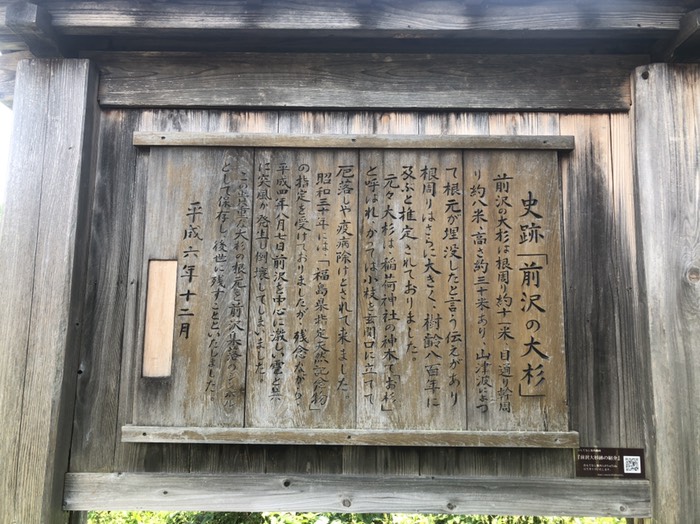 史跡「前沢の大杉」
前沢の大杉は根周り約十一米、目通り幹周
り約八米、高さ約三十米あり、山津波によっ
て根元が埋没したと言う伝えがあり
根周りはさらに大きく、樹齢八百年に
及ぶと推定されておりました。
元々大杉は、稲荷神社の神木で「お杉」
と呼ばれ、かつては小枝を玄関口に立てて
厄落しや疫病除けとされて来ました。
昭和三十年には、「福島県指定天然記念物」
の指定を受けておりましたが、残念ながら、
平成四年八月七日前沢を中心に激しい雷と共
に突風が発生し倒壊してしまいました。
この貴重な大杉の根元を「前沢集落のシンボル」
として保存し、後世に残すことといたしました。
平成六年十二月